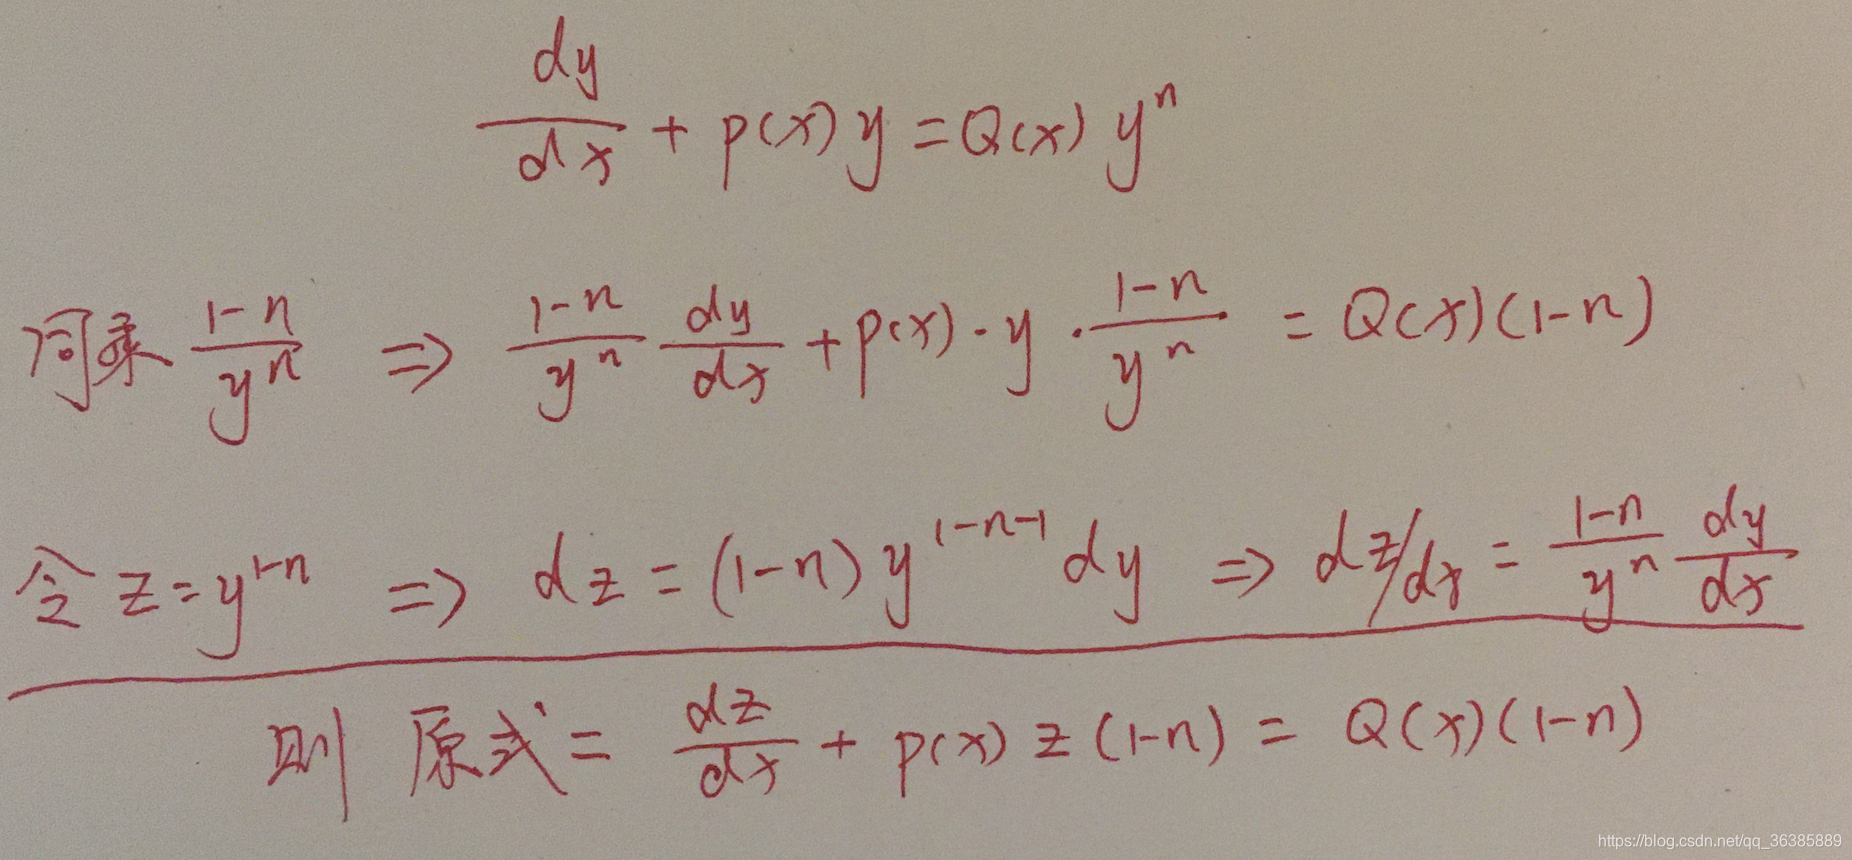 dy/dx + p(x) y = Q(x) yⁿ
同乘 (1-n)/yⁿ ⇒ (1-n)/yⁿ dy/dx + p(x)·y·(1-n)/yⁿ = Q(x)(1-n)
令 z=y¹⁻ⁿ ⇒ dz = (1-n) y¹⁻ⁿ⁻¹ dy ⇒ dz/dx = (1-n)/yⁿ dy/dx
则 原式 = dz/dx + p(x) z (1-n) = Q(x)(1-n)
https://blog.csdn.net/qq_36385889